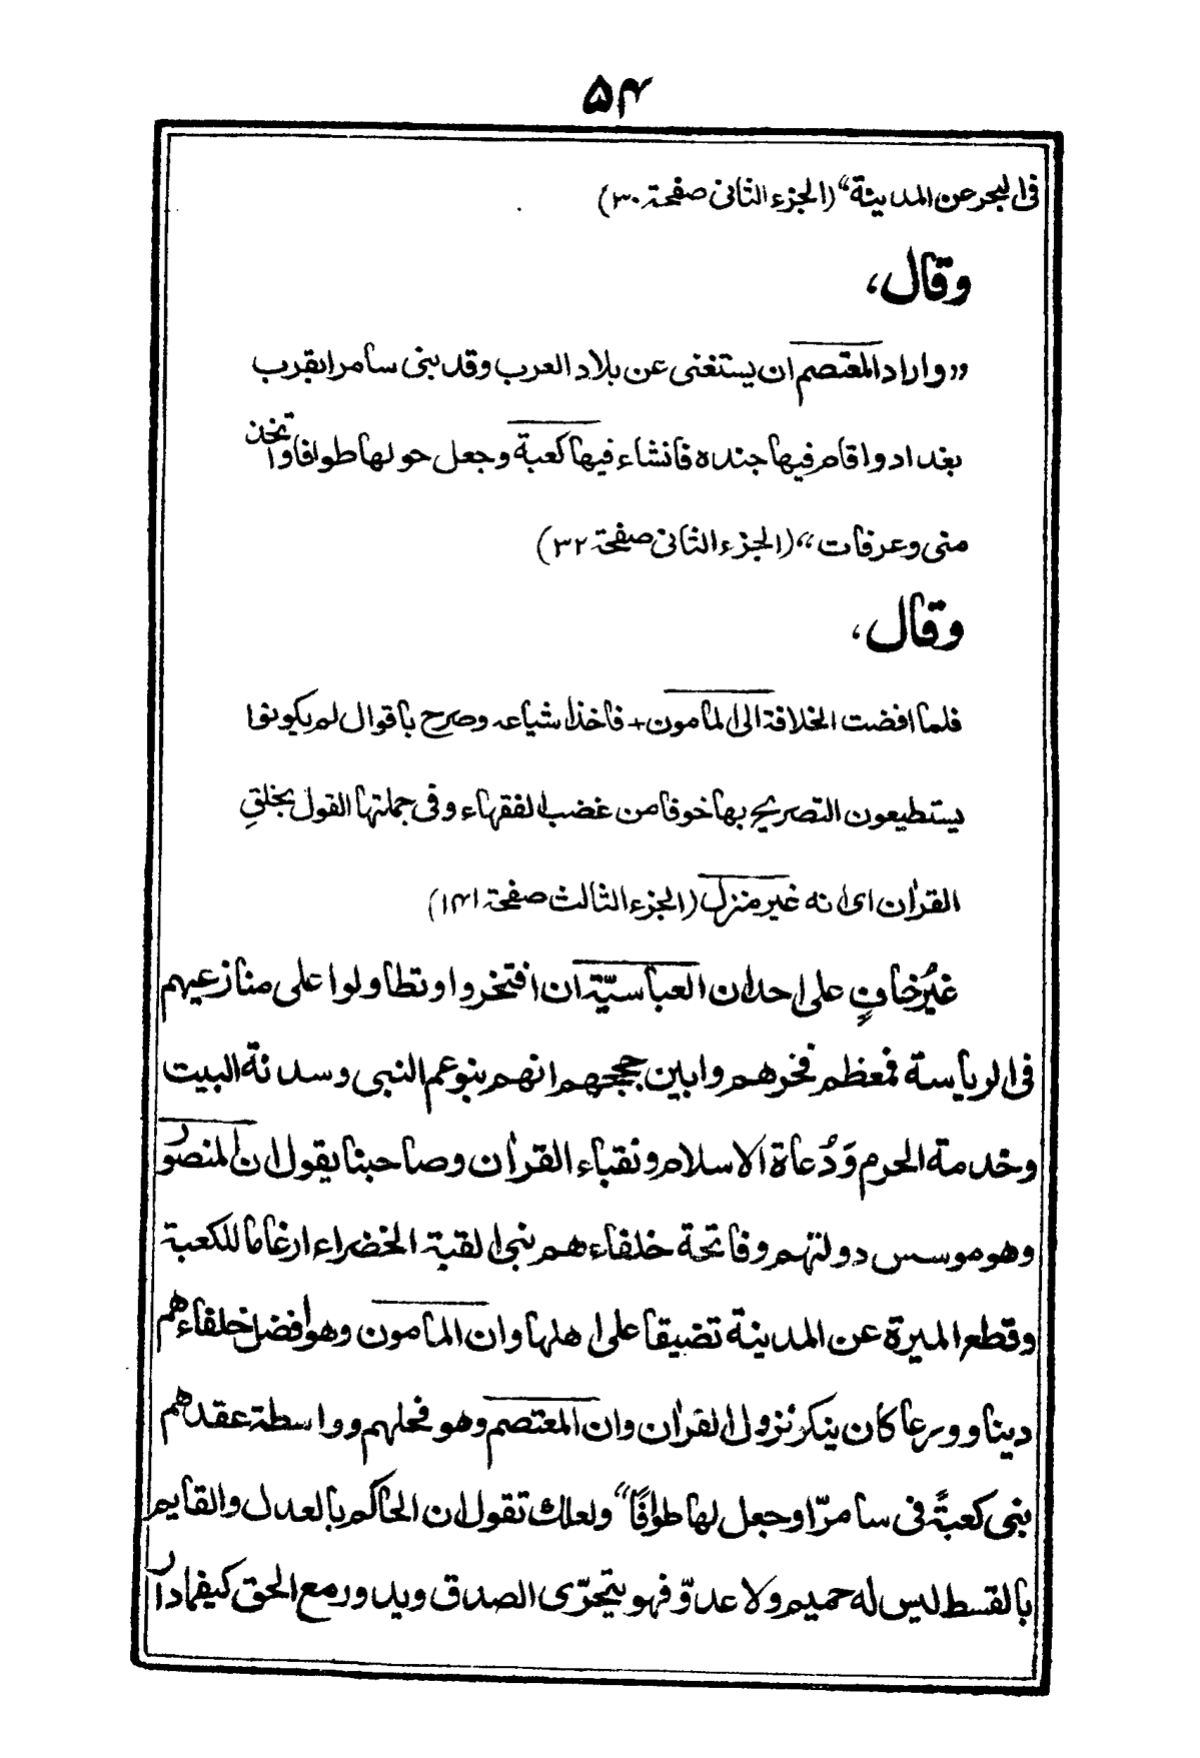 ۵۴
فی البحر عن المدینة“ (الجزء الثانی صفحة ۳۰)
وقال،
”واراد المعتصم ان یستغنی عن بلاد العرب وقد بنی سامرا بقرب
بغداد واقام فیها جنده فانشاء فیها کعبة وجعل حولها طوافا واتخذ
منی وعرفات“ (الجزء الثانی صفحة ۳۲)
وقال،
فلما افضت الخلافة الی المامون + فاخذ اشیاعه وصرح باقوال لم یکونوا
یستطیعون التصریح بها خوفا من غضب الفقهاء وفی جملتها القول بخلقِ
القراٰن ای انه غیر منزل (الجزء الثالث صفحة ۱۴۱)
غیرُ خافٍ علی احد ان العباسیّة ان افتخروا وتطاولوا علی منازعیهم
فی الریأسة فمعظم فخرهم وابین حججهم انهم بنو عم النبی وسدنة البیت
وخدمة الحرم وَدُعاة الاسلام ونقباء القراٰن وصاحبنا یقول ان المنصور
وهو موسس دولتهم وفاتحة خلفاءهم بنی القبة الخضراء ارغاما للکعبة
وقطع المیرة عن المدینة تضیقا علی اهلها وان المامون وهو افضل خلفاءهم
دینا وورعا کان ینکر نزول القراٰن وان المعتصم وهو فحلهم وواسطة عقدهم
بنی کعبةً فی سامرّا وجعل لها طوافًا“ ولعلک تقول ان الحاکم بالعدل والقایم
بالقسط لیس له حمیم ولا عدوّ فهو یتحرّی الصدق ویدور مع الحق کیفما دار